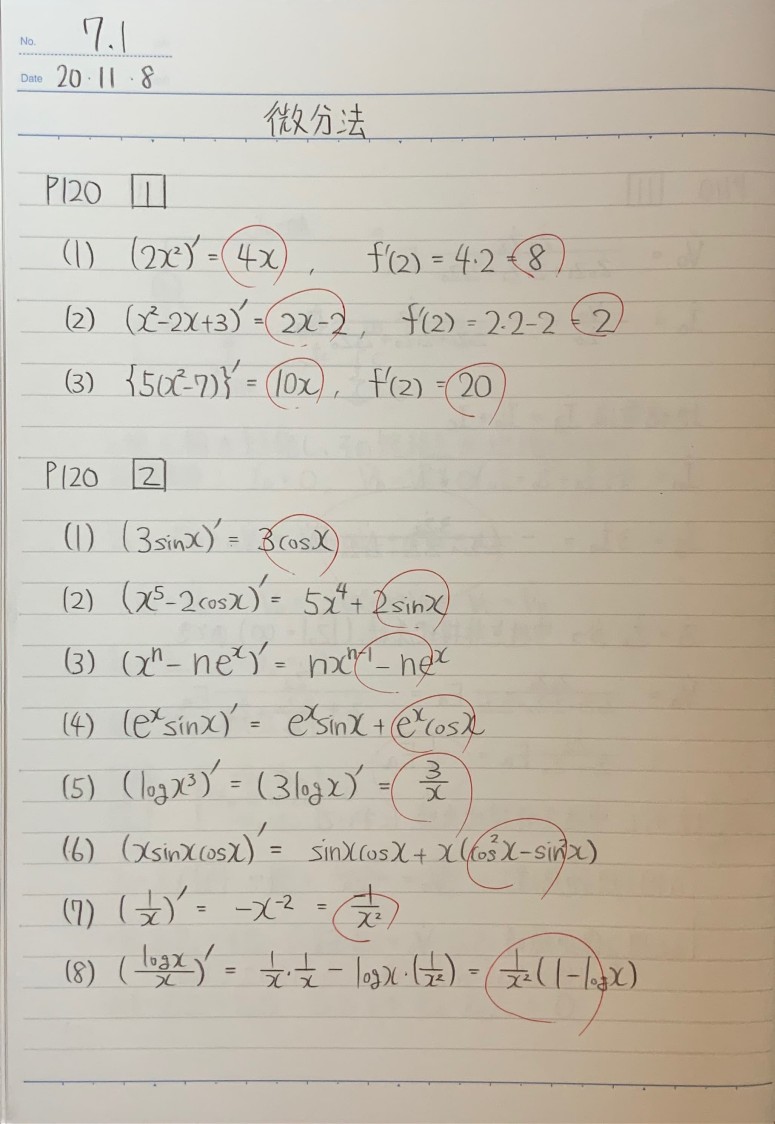 No. 7.1
Date 20・11・8
微分法
P120 1
(1) (2x²)′ = 4x , f′(2) = 4・2 = 8
(2) (x²-2x+3)′ = 2x-2 , f′(2) = 2・2-2 = 2
(3) {5(x²-7)}′ = 10x , f′(2) = 20
P120 2
(1) (3sinx)′ = 3cosx
(2) (x⁵-2cosx)′ = 5x⁴ + 2sinx
(3) (xⁿ - neˣ)′ = nxⁿ⁻¹ - neˣ
(4) (eˣsinx)′ = eˣsinx + eˣcosx
(5) (logx³)′ = (3logx)′ = 3/x
(6) (xsinxcosx)′ = sinxcosx + x(cos²x-sin²x)
(7) (1/x)′ = -x⁻² = -1/x²
(8) (logx/x)′ = 1/x・1/x - logx・(1/x²) = 1/x²(1-logx)